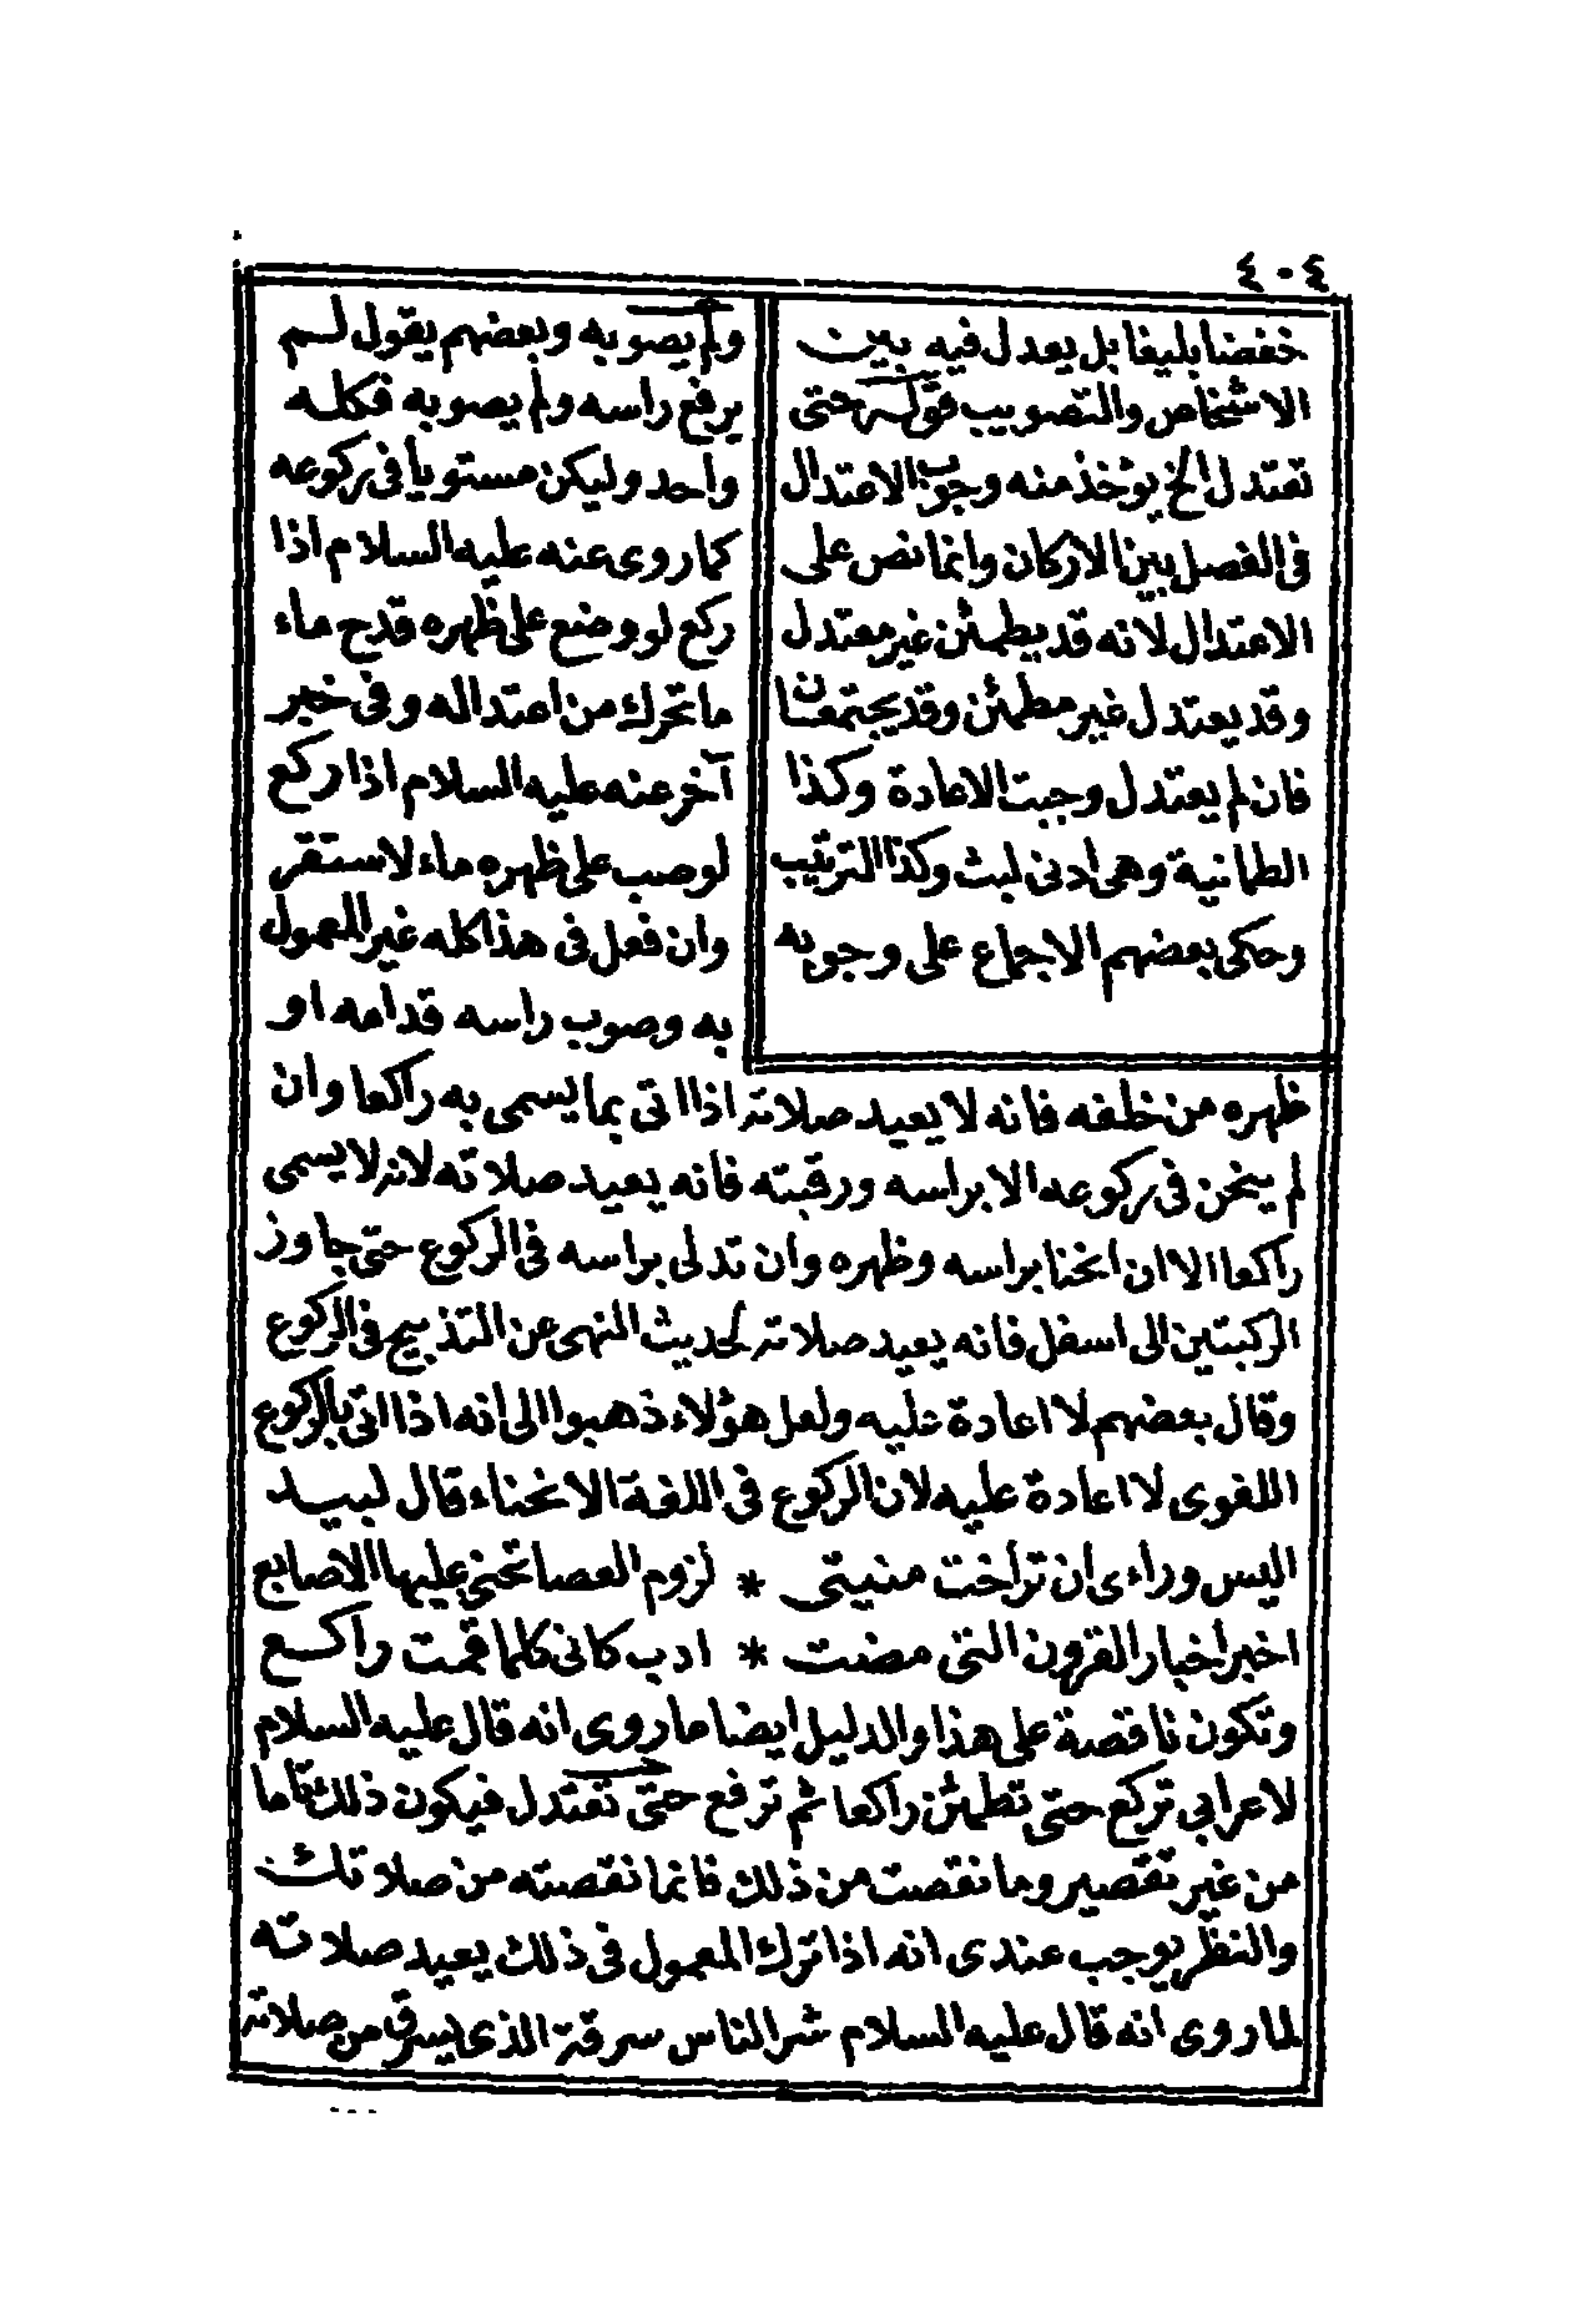 ٤٠٤
خفضا بليغا بل يعدل فيه بين
الاشخاص والتصويب قوله حتى
تعتدل الخ يوخذ منه وجوب الاعتدال
فى الفصل بين الاركان وانما نص على
الاعتدال لانه قد يطمئن غير معتدل
وقد يعتدل غير مطمئن وقد يجتمعان
فان لم يعتدل وجبت الاعادة وكذا
الطمانية وهى ادنى لبث وكذا الترتيب
وحكى بعضهم الاجماع على وجوبه
ولم يصوبه وبعضهم يقول لم
يرفع راسه ولم يصوبه فكله
واحد وليكن مستويا فى ركوعه
كما روى عنه عليه السلام اذا
ركع لو وضع على ظهره قدح ماء
ما تحرك من اعتداله وفى خبر
آخر عنه عليه السلام اذا ركع
لو صب على ظهره ماء لاستقر
وان فعل فى هذا كله غير المعمول
به وصوب راسه قدامه او
ظهره من خلفه فانه لا يعيد صلاته اذا اتى بما يسمى به راكعا وان
لم ينحن فى ركوعه الا براسه ورقبته فانه يعيد صلاته لانه لا يسمى
راكعا الا ان انحنا براسه وظهره وان تدلى براسه فى الركوع حتى جاوز
الركبتين الى اسفل فانه يعيد صلاته لحديث النهى عن التذبيح فى الركوع
وقال بعضهم لا اعادة عليه ولعل هؤلاء ذهبوا الى انه اذا اتى بالركوع
اللغوى لا اعادة عليه لان الركوع فى اللغة الانحناء قال لبيد
اليس وراءى ان تراخت منيتى * لزوم العصا تحنى عليها الاصابع
اخبر اخبار القرون التى مضت * ادب كانى كلما قمت راكع
وتكون ناقصة على هذا والدليل ايضا ما روى انه قال عليه السلام
لاعرابى تركع حتى تطمئن راكعا ثم ترفع حتى تعتدل فيكون ذلك تاما
من غير تقصير وما نقصت من ذلك فانما نقصته من صلاتك
والنظر يوجب عندى انه اذا ترك المعمول فى ذلك يعيد صلاته
لما روى انه قال عليه السلام شر الناس سرقة الذى يسرق من صلاته